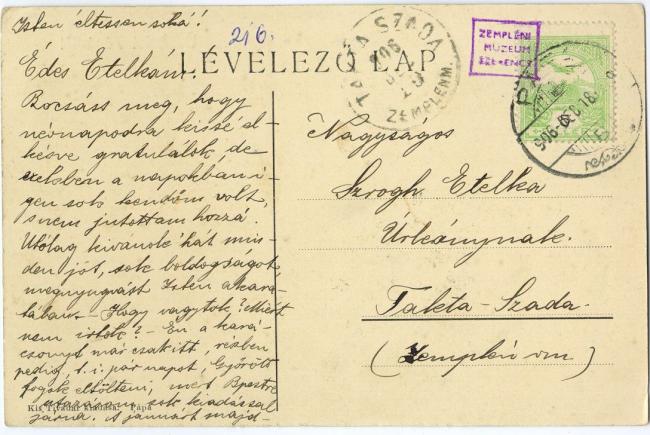 Isten éltessen soká!
216.
LÉVELEZŐ LAP
TAKTA SZADA
ZEMPLÉNM.
ZEMPLÉNI
MÚZEUM
SZERENCS
906 DEC 18
Édes Etelkám.
Bocsáss meg, hogy
névnapodra kissé el-
késve gratulálok, de
ezekben a napokban i-
gen sok kendőm volt,
s nem jutottam hozzá.
Utólag kivánok hát min-
den jót, sok boldogságot,
megnyugvást Isten akara-
tában. – Hogy vagytok? Miért
nem irtok? – Én a kará-
csonyt már csak itt, részben
pedig, t. i. pár napot, Győrött
fogok eltölteni, mert Bpestre
utaznom sok kiadással
járna. A januárt majd-
Kis Tivadar kiadása: Pápa
Nagyságos
Szrogh Etelka
Úrleánynak.
Takta-Szada.
(Zemplén vm)